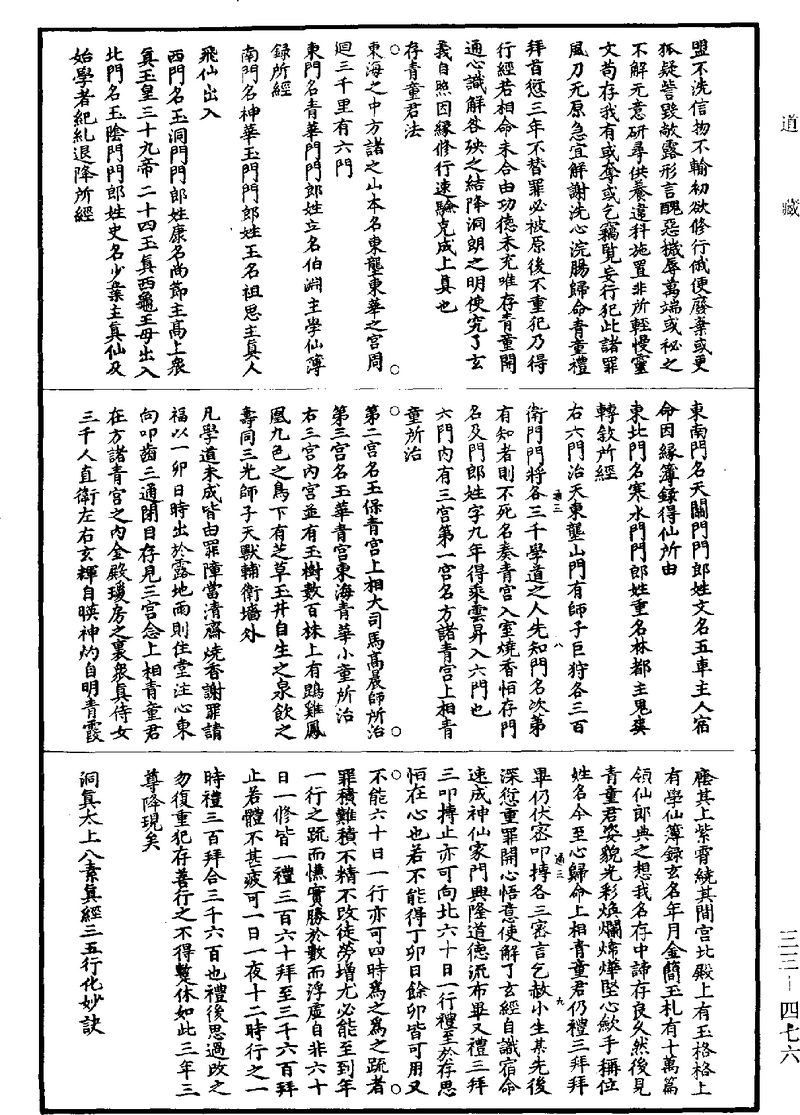 道藏
盟不洗信物不輸初欲修行俄便廢棄或更
狐疑訾毀敵露形言醜惡機辱萬端或秘之
不解元意研尋供養違科施置非所輕慢靈
文苟存我有或奪或乞竊覽妄行犯此諸罪
風刀无原急宜解謝洗心浣腸歸命青童禮
拜首愆三年不替罪必被原後不重犯乃得
行經若相命未合由功德未充唯存青童開
通心識解咎殃之結降洞朗之明使究了玄
義自照因緣修行速驗克成上真也
存青童君法
東海之中方諸之山本名東壟東華之宮周
迴三千里有六門
東門名青華門門郎姓立名伯淵主學仙簿
錄所經
南門名神華玉門門郎姓王名祖思主真人
飛仙出入
西門名玉洞門門郎姓康名尚節主高上衆
真玉皇三十九帝二十四玉真西龜王母出入
北門名玉陰門門郎姓史名少葉主真仙及
始學者紀糺退降所經
東南門名天關門門郎姓文名五車主人宿
命因緣簿錄得仙所由
東北門名寒水門門郎姓重名林都主鬼㚑
轉敘所經
右六門治天東壟山門有師子巨狩各三百
衛門門將各三千學道之人先知門名次第
有知者則不死名奏青宮入室燒香恒存門
名及門郎姓字九年得乘雲昇入六門也
六門內有三宮第一宮名方諸青宮上相青
童所治
第二宮名玉保青宮上相大司馬高晨師所治
第三宮名玉華青宮東海青華小童所治
右三宮內宮並有玉樹數百株上有鵾雞鳳
凰九色之鳥下有芝草玉井自生之泉飲之
壽同三光師子天獸輔衛墻外
凡學道未成皆由罪障當清齋燒香謝罪請
福以一卯日時出於露地雨則住堂注心東
向叩齒三通閉目存見三宮念上相青童君
在方諸青宮之內金殿瓊房之裏衆真侍女
三千人直衛左右玄輝自暎神灼自明青霞
蔭其上紫霄繞其間宮北殿上有玉格格上
有學仙簿錄玄名年月金簡玉札有十萬篇
領仙郎典之想我名存中諦存良久然後見
青童君姿貌光彩煥爛煒燁堅心歛手稱位
姓名今至心歸命上相青童君仍禮三拜拜
畢仍伏密叩摶各三密言乞赦小生某先後
深愆重罪開心悟意使解了玄經自識宿命
速成神仙家門興隆道德流布畢又禮三拜
三叩摶止亦可向北六十日一行禮至於存思
恒在心也若不能得丁卯日餘卯皆可用又
不能六十日一行亦可四時爲之爲之疏者
罪積難積不精不改徒勞增尤必能至到年
一行之疏而慊實勝於數而浮虛自非六十
日一修皆一禮三百六十拜至三千六百拜
止若體不甚疲可一日一夜十二時行之一
時禮三百拜合三千六百也禮後思過改之
勿復重犯存善行之不得蹔休如此三年三
尊降現矣
洞真太上八素真經三五行化妙訣
三三－四七六